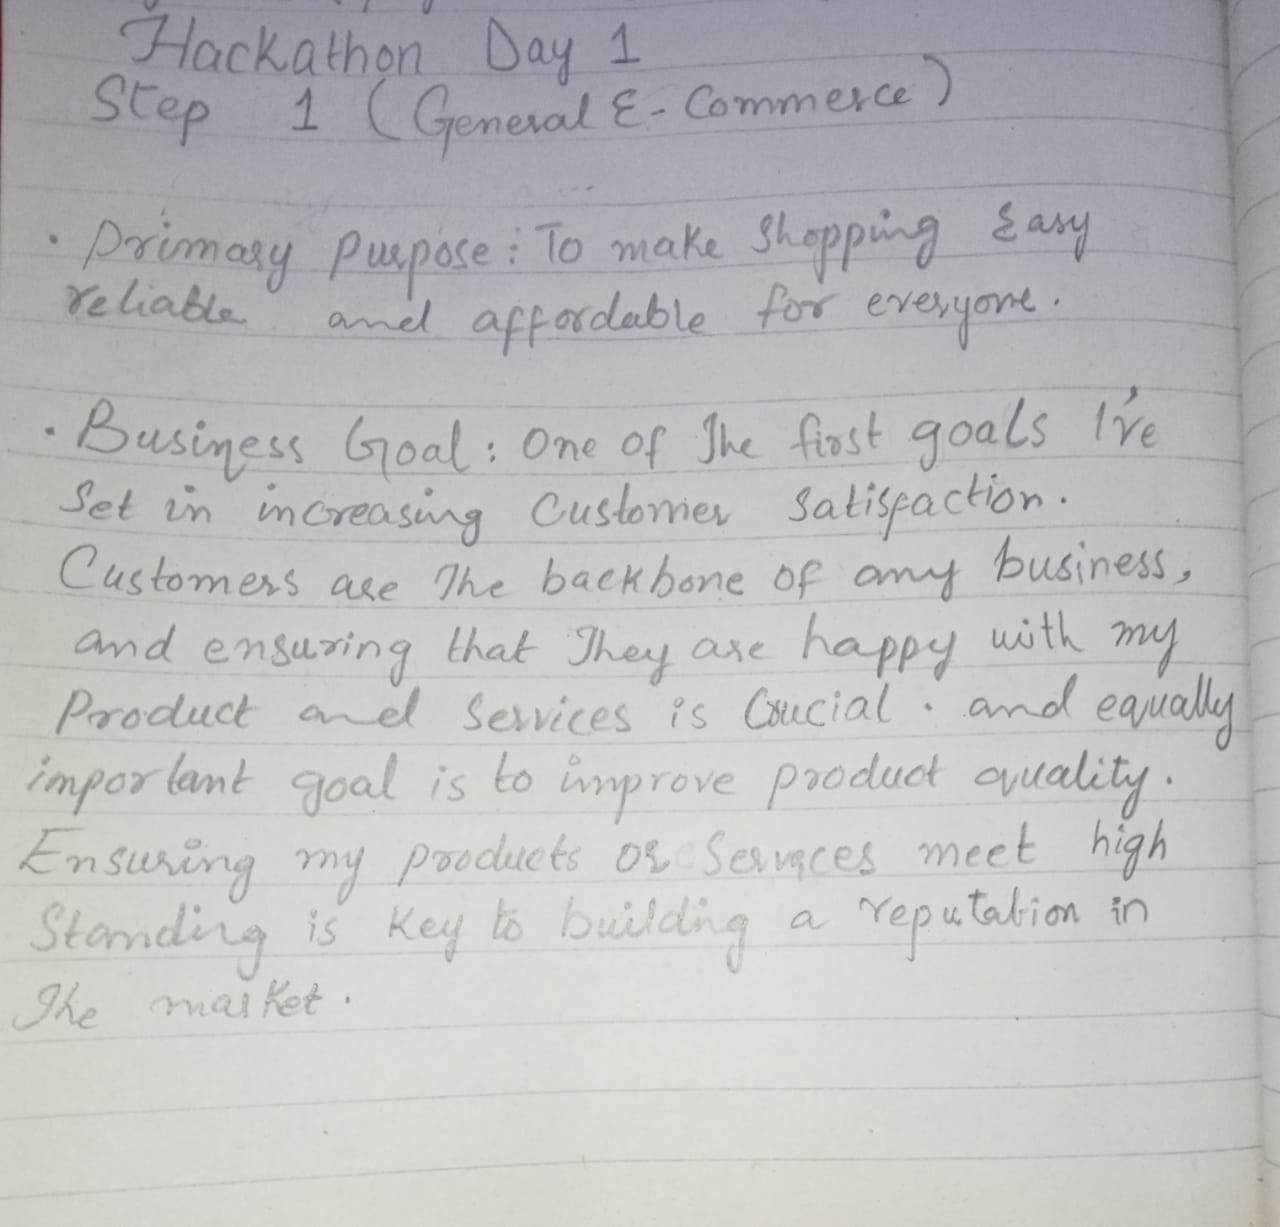 Hackathon Day 1
Step 1 (General E-Commerce)
• Primary Purpose: To make Shopping Easy
reliable and affordable for everyone.
• Business Goal: One of The first goals I've
Set in increasing Customer Satisfaction.
Customers are The backbone of any business,
and ensuring that They are happy with my
Product and Services is Crucial. and equally
important goal is to improve product quality.
Ensuring my products or Services meet high
Standing is key to building a reputation in
The market.